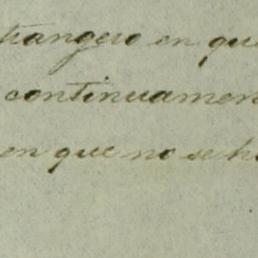 trangero en que
continuamen
en que no se h